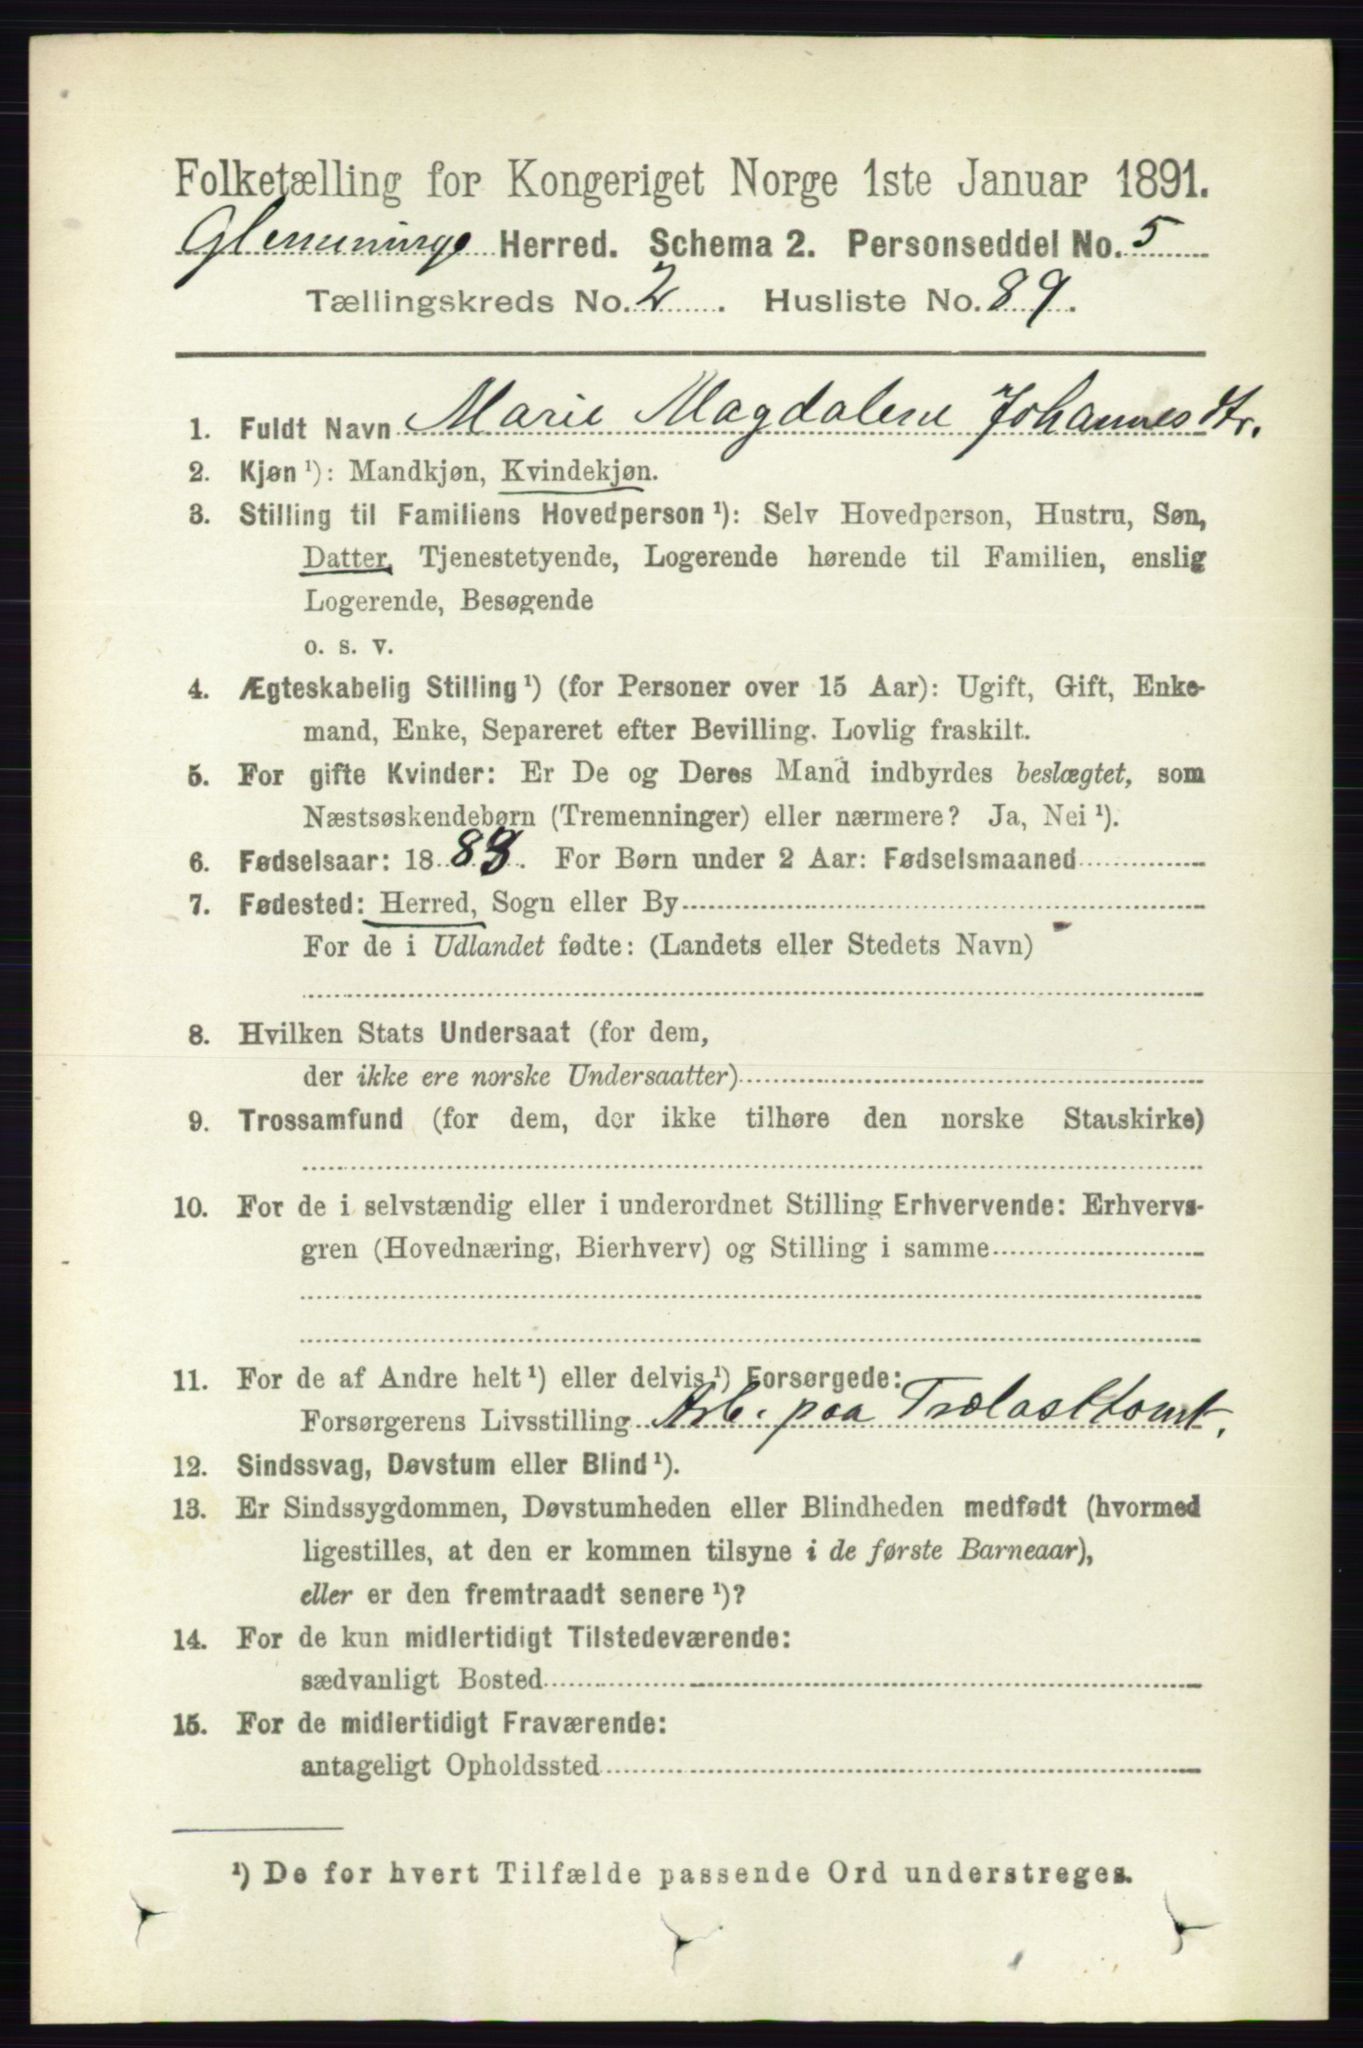 Folketælling for Kongeriget Norge 1ste Januar 1891.
Glemminge Herred. Schema 2. Personseddel No. 5
Tællingskreds No. 2. Husliste No. 89.
1. Fuldt Navn Marie Magdalene Johannesdtr.
2. Kjøn ¹): Mandkjøn, Kvindekjøn.
3. Stilling til Familiens Hovedperson ¹): Selv Hovedperson, Hustru, Søn,
Datter, Tjenestetyende, Logerende hørende til Familien, enslig
Logerende, Besøgende
o. s. v.
4. Ægteskabelig Stilling ¹) (for Personer over 15 Aar): Ugift, Gift, Enke-
mand, Enke, Separeret efter Bevilling. Lovlig fraskilt.
5. For gifte Kvinder: Er De og Deres Mand indbyrdes beslægtet, som
Næstsøskendebørn (Tremenninger) eller nærmere? Ja, Nei ¹).
6. Fødselsaar: 18 . For Børn under 2 Aar: Fødselsmaaned
7. Fødested: Herred, Sogn eller By
For de i Udlandet fødte: (Landets eller Stedets Navn)
8. Hvilken Stats Undersaat (for dem,
der ikke ere norske Undersaatter)
9. Trossamfund (for dem, der ikke tilhøre den norske Statskirke)
10. For de i selvstændig eller i underordnet Stilling Erhvervende: Erhvervs-
gren (Hovednæring, Bierhverv) og Stilling i samme
11. For de af Andre helt ¹) eller delvis ¹) Forsørgede:
Forsørgerens Livsstilling Arb. paa Trælasttomt.
12. Sindssvag, Døvstum eller Blind ¹).
13. Er Sindssygdommen, Døvstumheden eller Blindheden medfødt (hvormed
ligestilles, at den er kommen tilsyne i de første Barneaar),
eller er den fremtraadt senere ¹)?
14. For de kun midlertidigt Tilstedeværende:
sædvanligt Bosted
15. For de midlertidigt Fraværende:
antageligt Opholdssted
¹) De for hvert Tilfælde passende Ord understreges.